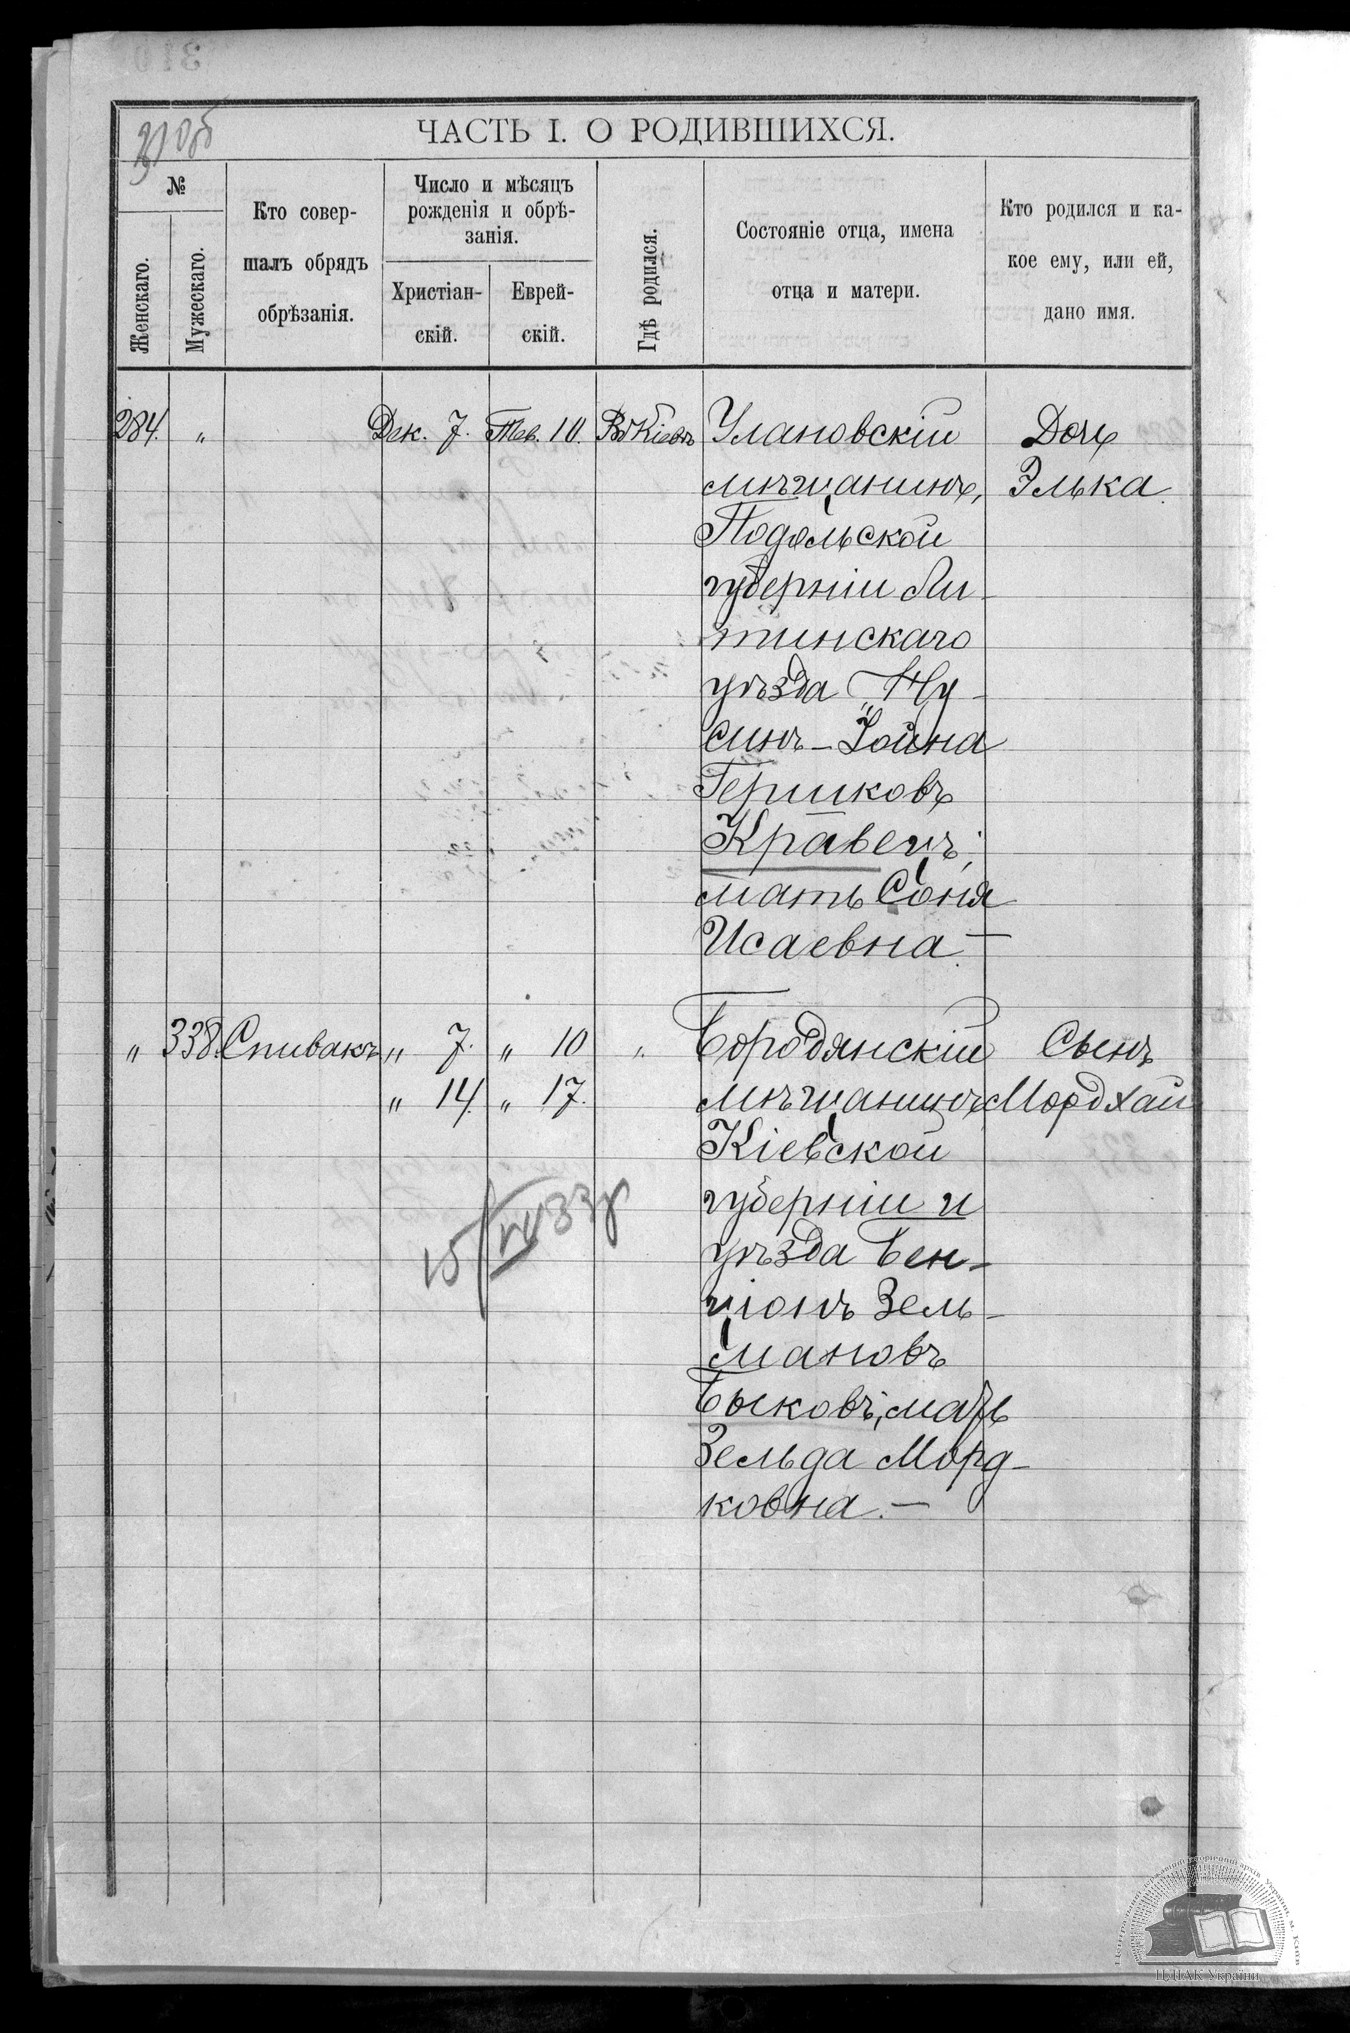 310об
ЧАСТЬ I. О РОДИВШИХСЯ.
№
Женскаго.
Мужескаго.
Кто совер-
шалъ обрядъ
обрѣзанія.
Число и мѣсяцъ
рожденія и обрѣ-
занія.
Христіан-
скій.
Еврей-
скій.
Гдѣ родился.
Состояніе отца, имена
отца и матери.
Кто родился и ка-
кое ему, или ей,
дано имя.
284. " Дек. 7. Тев. 10. Въ Кіевѣ Улановскій Дочь
мѣщанинъ, Элька.
Подольской
губерніи Ли-
тинскаго
уѣзда Ну-
синъ-Іойна
Гершковъ
Кравецъ;
мать Соня
Исаевна.—
" 338. Спивакъ " 7. " 10 " Бородянскій Сынъ
" 14. " 17. мѣщанинъ Мордхай
Кіевской
губерніи и
уѣзда Бен-
ціонъ Зель-
мановъ
Быковъ; мать
Зельда Морд-
ковна.—
ЦДІАК України